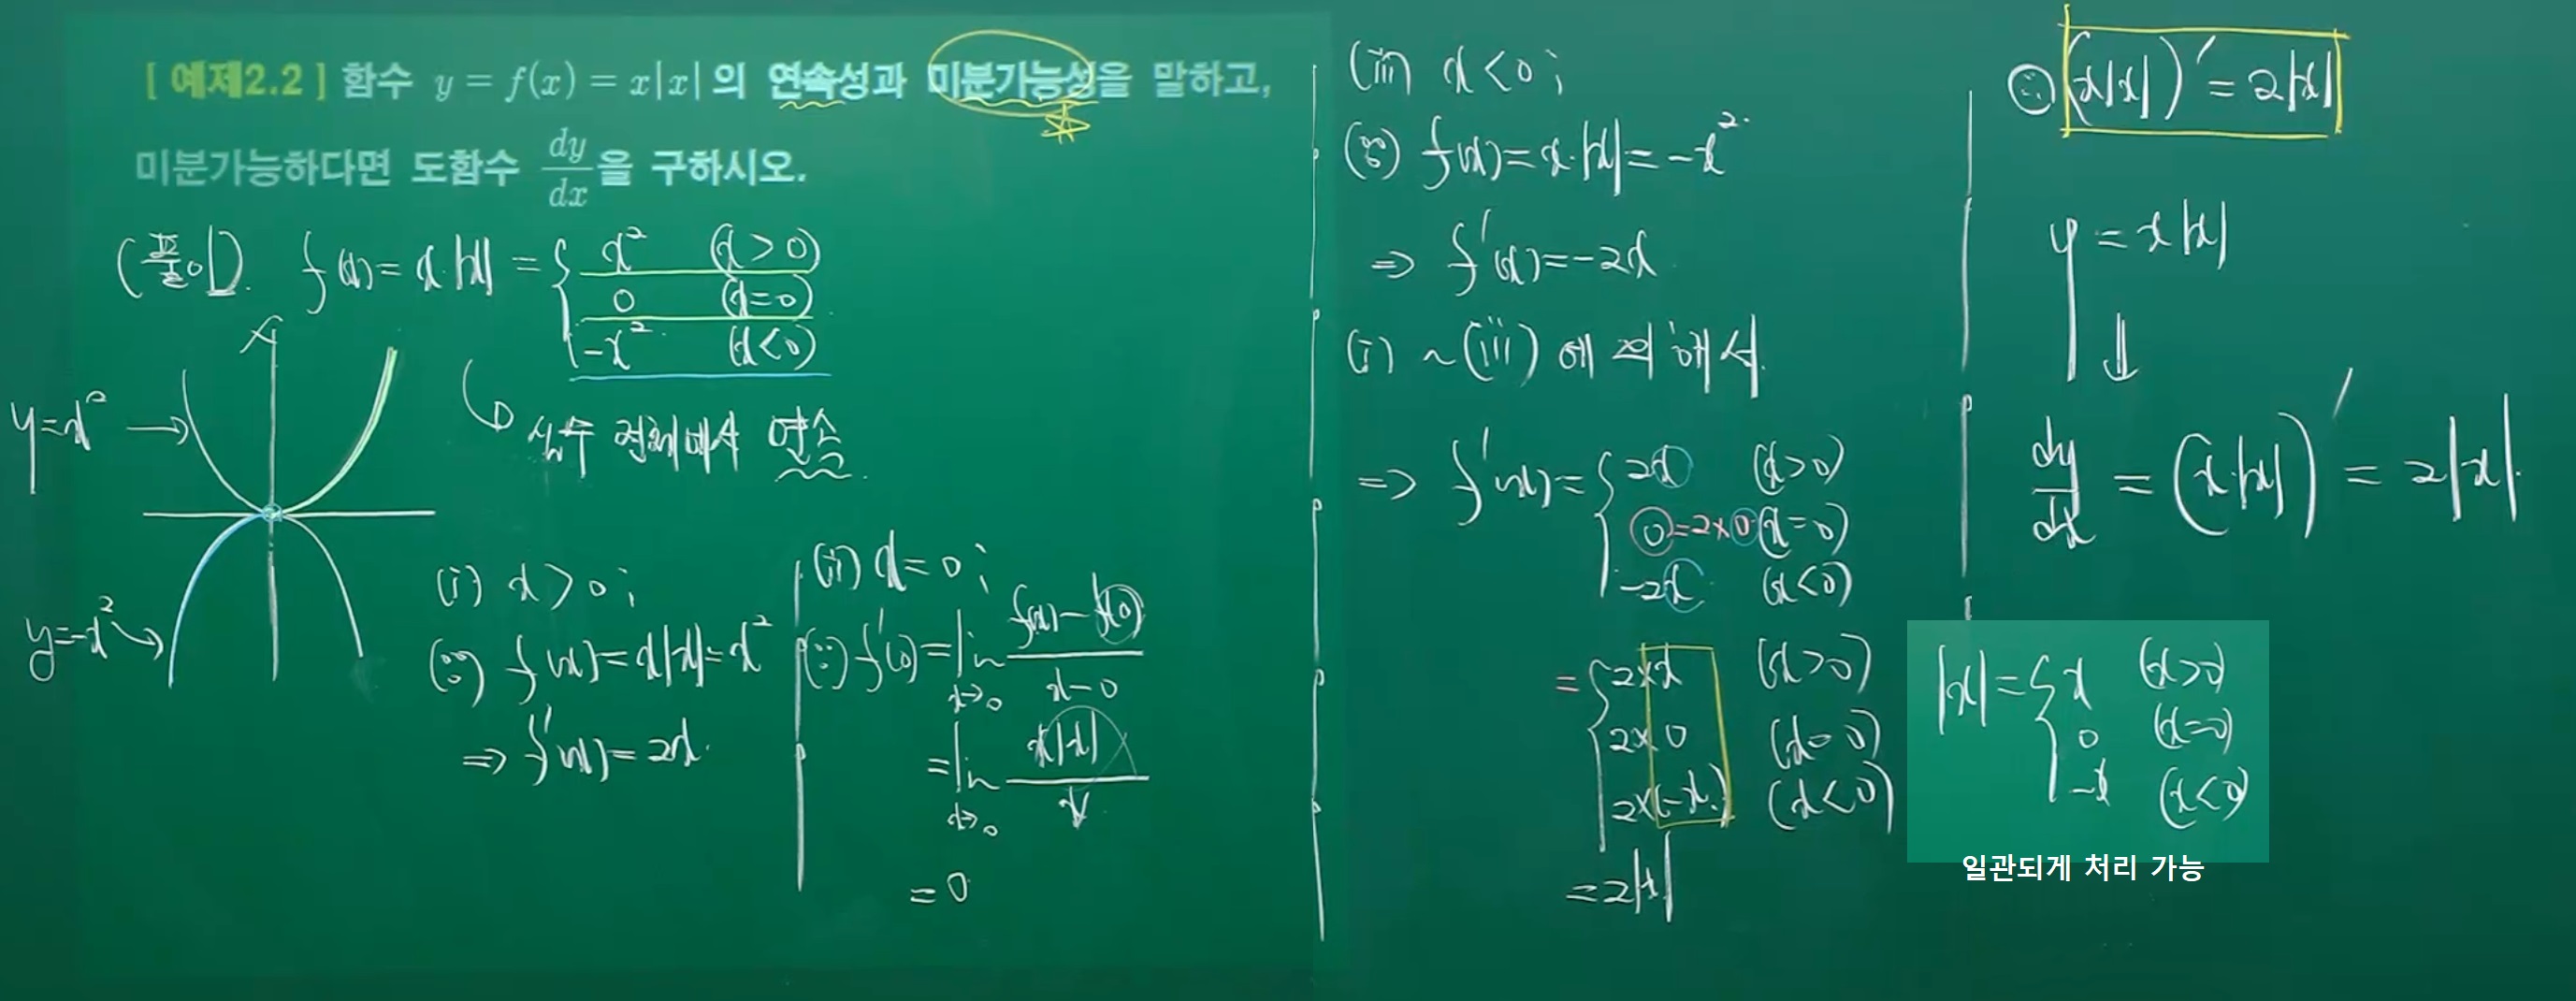 [ 예제2.2 ] 함수 y = f(x) = x|x| 의 연속성과 미분가능성을 말하고,
미분가능하다면 도함수 dy/dx 을 구하시오.
(풀이). f(x) = x·|x| = { x² (x>0)
0 (x=0)
-x² (x<0)
실수 전체에서 연속
y=x² →
y=-x²
(i) x>0 ;
(∵) f(x)=x|x|=x²
⇒ f'(x)=2x.
(ii) x=0 ;
(∵) f'(0)=lim x→0 (f(x)-f(0))/(x-0)
=lim x→0 x|x|/x
=0
(iii) x<0 ;
(∵) f(x)=x·|x|=-x²
⇒ f'(x)=-2x
(i) ~ (iii) 에 의해서
⇒ f'(x)= { 2x (x>0)
0=2×0 (x=0)
-2x (x<0)
= { 2×x (x>0)
2×0 (x=0)
2×(-x) (x<0)
=2|x|
∴ (x|x|)' = 2|x|
y = x|x|
↓
dy/dx = (x·|x|)' = 2|x|.
|x|= { x (x>0)
0 (x=0)
-x (x<0)
일관되게 처리 가능